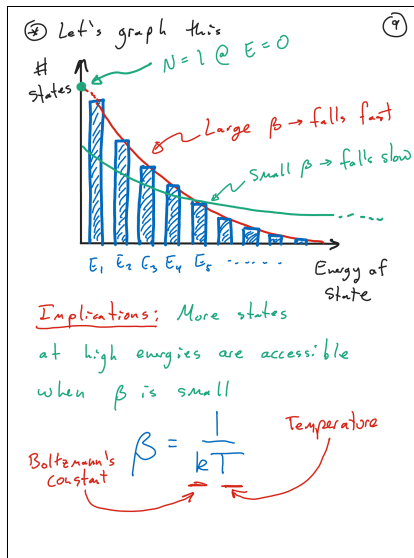 * Let's graph this
9
N=1 @ E=0
# states
Large β → falls fast
Small β → falls slow
E1 E2 E3 E4 E5 ......
Energy of State
Implications: More states
at high energies are accessible
when β is small
β = 1/kT
Temperature
Boltzmann's constant